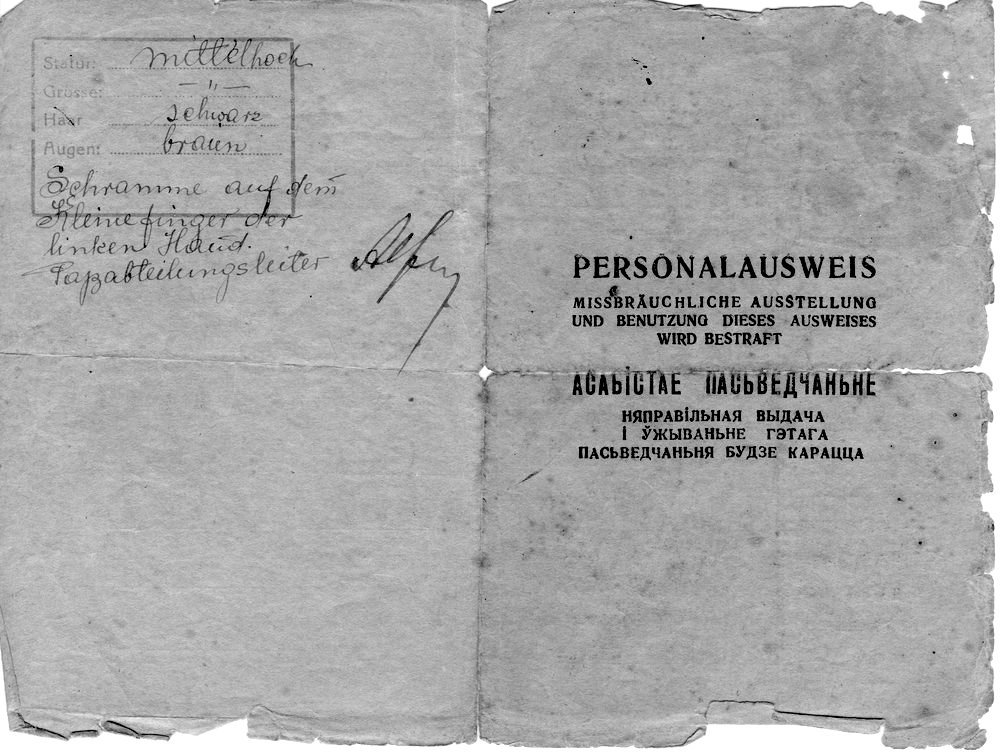 Statur: mittelhoch
Grösse: — " —
Haar schwarz
Augen: braun
Schramme auf dem
Kleinefinger der
linken Hand.
Paßabteilungsleiter
PERSONALAUSWEIS
MISSBRÄUCHLICHE AUSSTELLUNG
UND BENUTZUNG DIESES AUSWEISES
WIRD BESTRAFT
АСАБІСТАЕ ПАСЬВЕДЧАНЬНЕ
НЯПРАВІЛЬНАЯ ВЫДАЧА
І ЎЖЫВАНЬНЕ ГЭТАГА
ПАСЬВЕДЧАНЬНЯ БУДЗЕ КАРАЦЦА